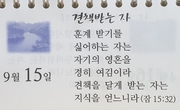 견책받는 자
훈계 받기를
싫어하는 자는
자기의 영혼을
경히 여김이라
견책을 달게 받는 자는
지식을 얻느니라(잠 15:32)
9월 15일